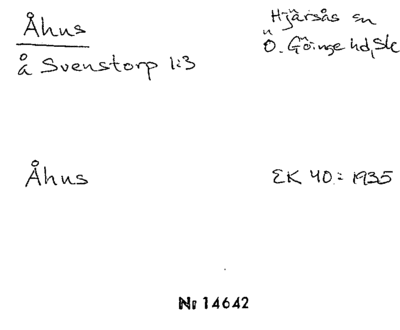 Åhus
Hjärsås sn
å Svenstorp 1:3
Ö. Göinge hd, Sk
Åhus
EK 40: 1935
Nr 14642